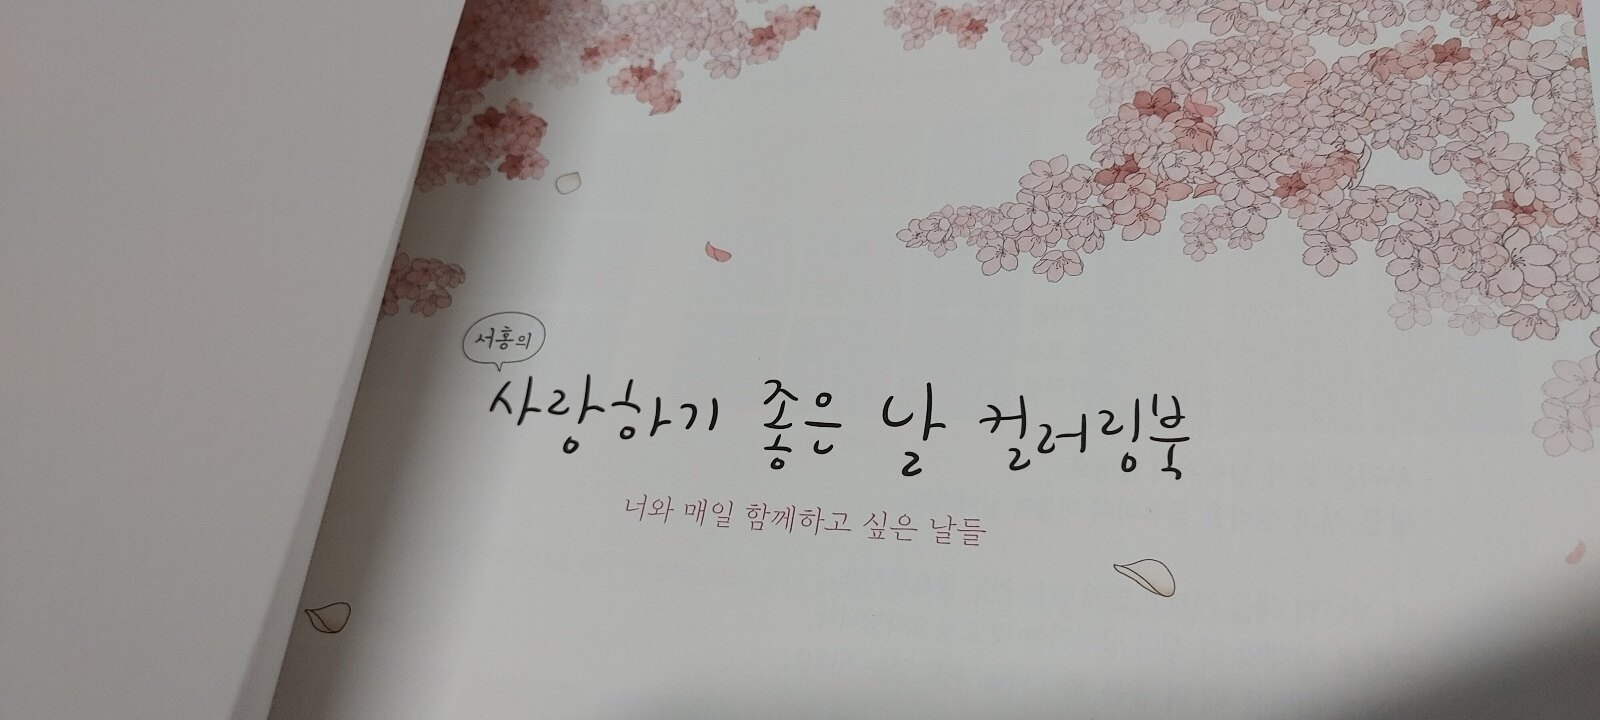 서홍의
사랑하기 좋은 날 컬러링북
너와 매일 함께하고 싶은 날들